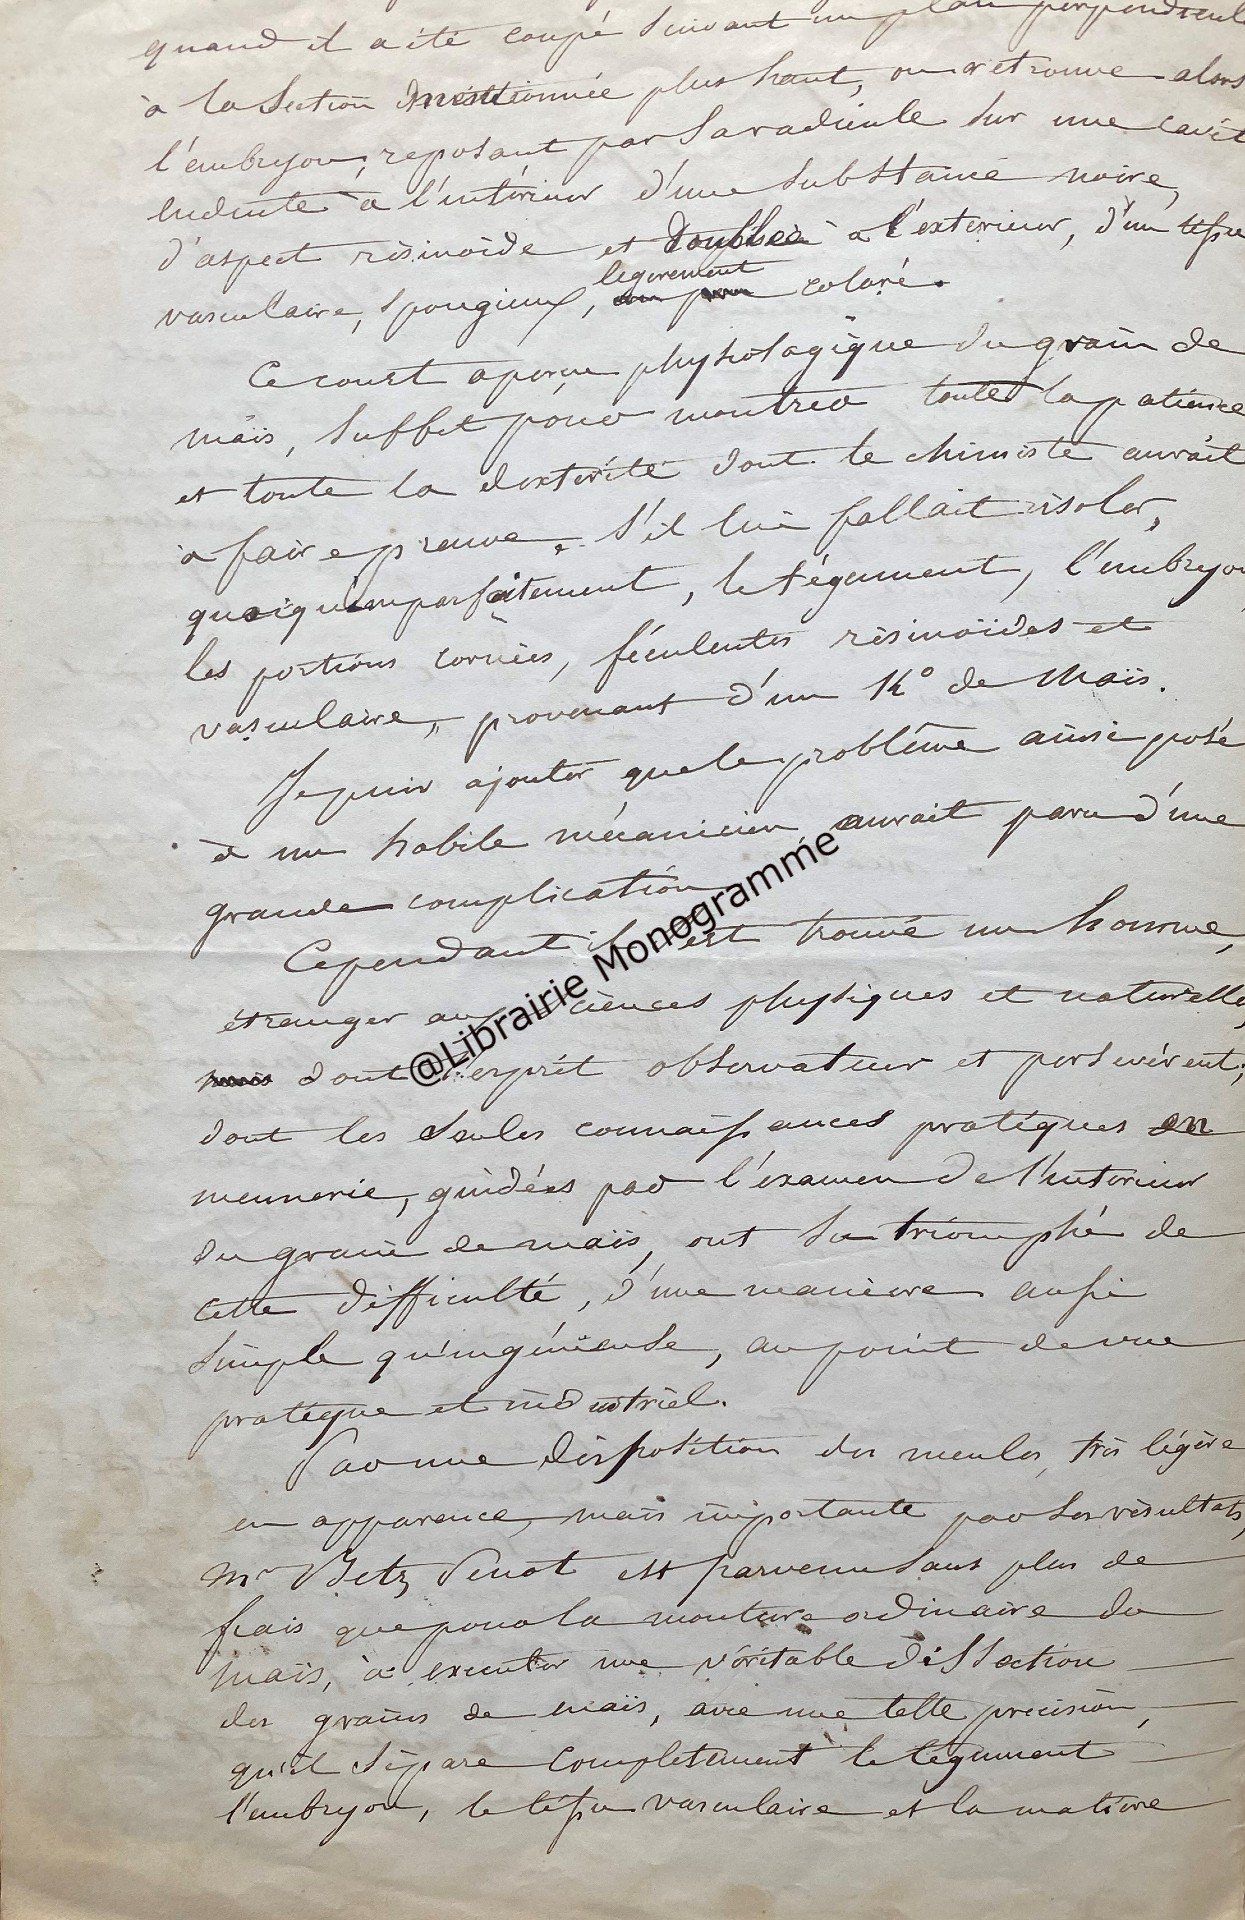 quand il a été coupé suivant un plan perpendicul
à la Section mentionnée plus haut, on retrouve alors
l'embryon, reposant par sa radicule sur une cavit
enduite à l'intérieur d'une substance noire,
d'aspect résinoïde et doublée à l'exterieur, d'un tissu
legerement
vasculaire, spongieux, un peu coloré.
Ce court aperçu physiologique du grain de
maïs, suffit pour montrer toute la patience
et toute la dextérité dont le chimiste aurait
à faire preuve, s'il lui fallait isoler,
quoiqu'imparfaitement, le tégument, l'embryon
les portions cornées, féculentes résinoïdes et
vasculaire, provenant d'un K° de Maïs.
Je puis ajouter que le problême ainsi posé
à un habile mécanicien aurait paru d'une
grande complication
Cependant il s'est trouvé un homme,
étranger aux sciences physiques et naturelles,
mais dont l'esprit observateur et persévérent,
dont les seules connaissances pratiques en
meunerie, guidées par l'examen de l'interieur
du grain de maïs, ont su triomphé de
cette difficulté, d'une manière aussi
simple qu'ingénieuse, au point de vue
pratique et industriel.
Par une disposition des meules, très légère
en apparence, mais importante par ses résultats,
Mr Betz Penot est parvenu sans plus de
frais que pour la mouture ordinaire du
maïs, à executer une véritable dissection
des grains de maïs, avec une telle precision,
qu'il sépare completement le tégument
l'embryon, le tissu vasculaire et la matière
@Librairie Monogramme